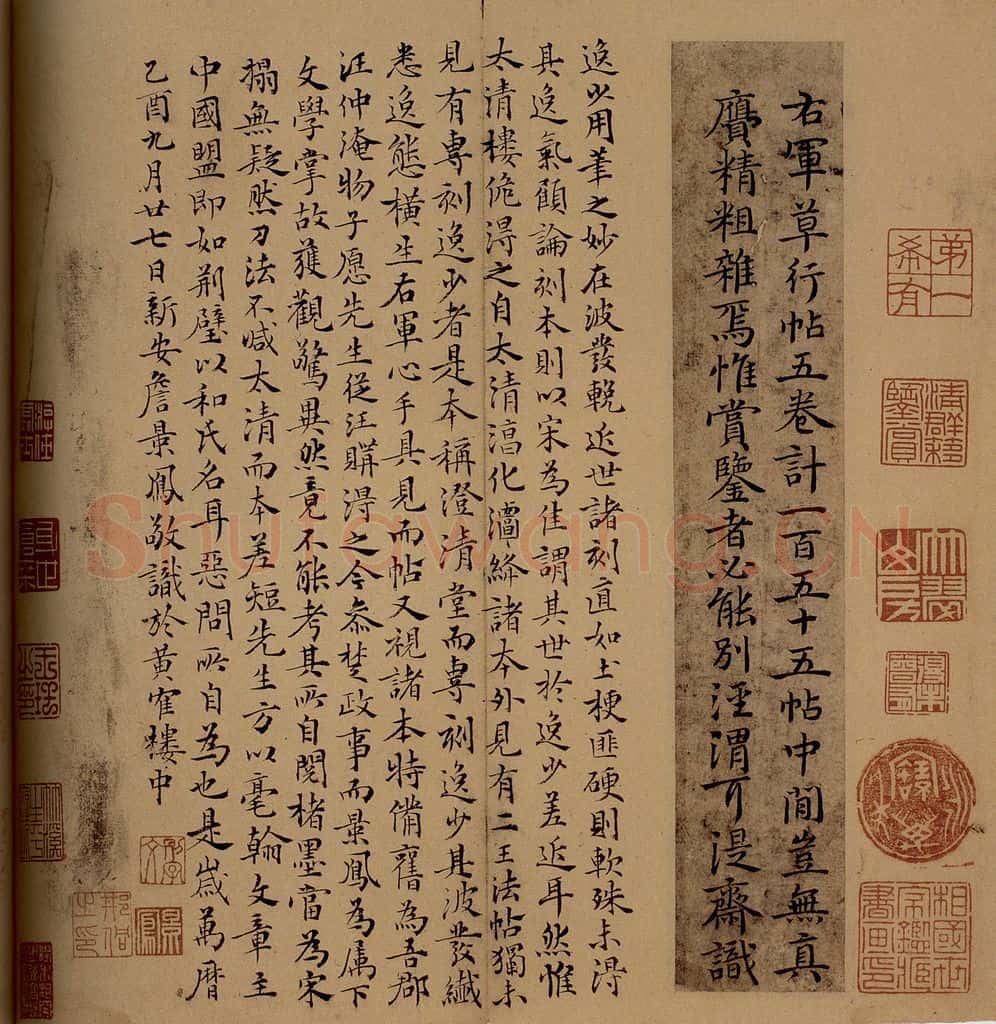 第一希有
右軍草行帖五卷計一百五十五帖中間豈無真
贗精粗雜焉惟賞鑒者必能別涇渭齋識
逸少用筆之妙在波發輓近世諸刻直如土梗匪硬則軟殊未得
其逸氣顧論刻本則以宋為佳謂其世於逸少差近耳然惟
太清樓得之自太清淳化潭絳諸本外見有二王法帖獨未
見有專刻逸少者是本稱澄清堂而專刻逸少其波發纖
悉逸態橫生右軍心手具見而帖又視諸本特備舊為吾郡
汪仲淹物子愿先生從汪購得之今叅楚政事而景鳳為属下
文學掌故獲觀驚異然竟不能考其所自閱楮墨當為宋
搨無疑然刀法不減太清而本差短先生方以毫翰文章主
中國盟即如荊璧以和氏名耳惡問所自為也是歲萬曆
己酉九月廿七日新安詹景鳳敬識於黃寉樓中
景鳳
Shufawang.CN